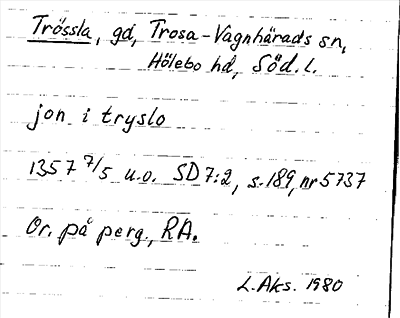 Trössla, gd, Trosa-Vagnhärads sn,
Hölebo hd, Söd.l.
jon i tryslo
1357 7/5 u.o. SD 7:2, s.189, nr 5737
Or. på perg., RA.
L.Aks. 1980